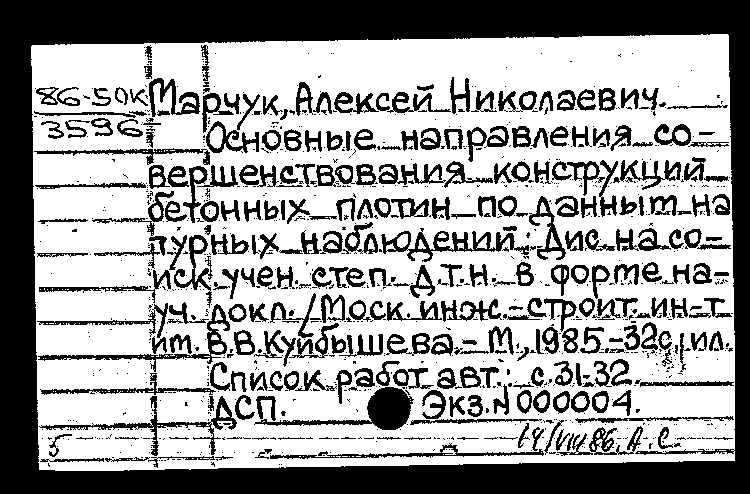 86-50к Марчук, Алексей Николаевич.
3596 Основные направления со-
вершенствования конструкций
бетонных плотин по данным на
турных наблюдений: Дис. на со-
иск. учен. степ. д.т.н. в форме на-
уч. докл. / Моск. инж.-строит. ин-т
им. В.В. Куйбышева. - М., 1985. - 32с., ил.
Список работ авт.: с.31-32.
ДСП. Экз. N 000004.
5 14/VIII 86. А. С.